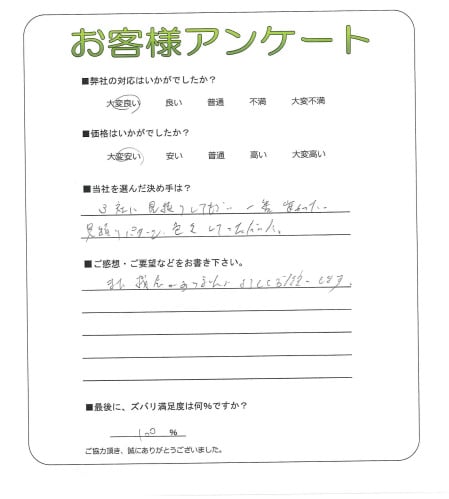 お客様アンケート
■弊社の対応はいかがでしたか？
大変良い 良い 普通 不満 大変不満
■価格はいかがでしたか？
大変安い 安い 普通 高い 大変高い
■当社を選んだ決め手は？
3社に見積りして 一番
見積り
■ご感想・ご要望などをお書き下さい。
また 機会がありましたら
■最後に、ズバリ満足度は何%ですか？
100 %
ご協力頂き、誠にありがとうございました。